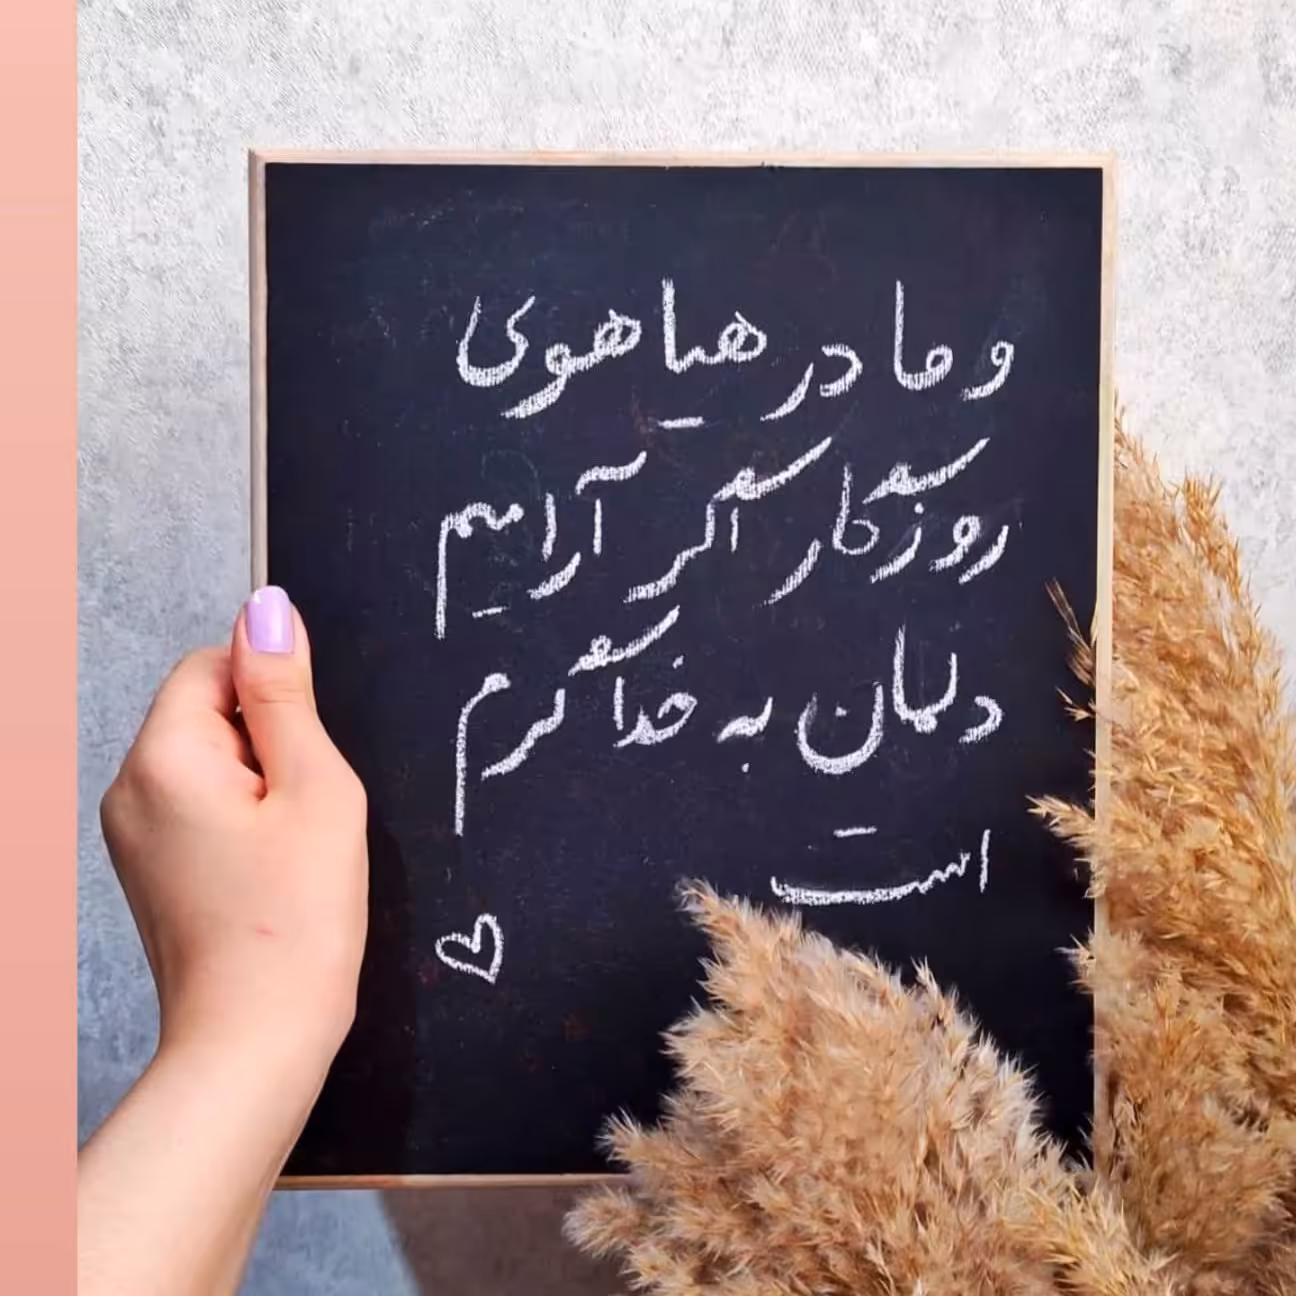 و ما در هیاهوی
روزگار اگر آرامیم
دلمان به خدا گرم
است